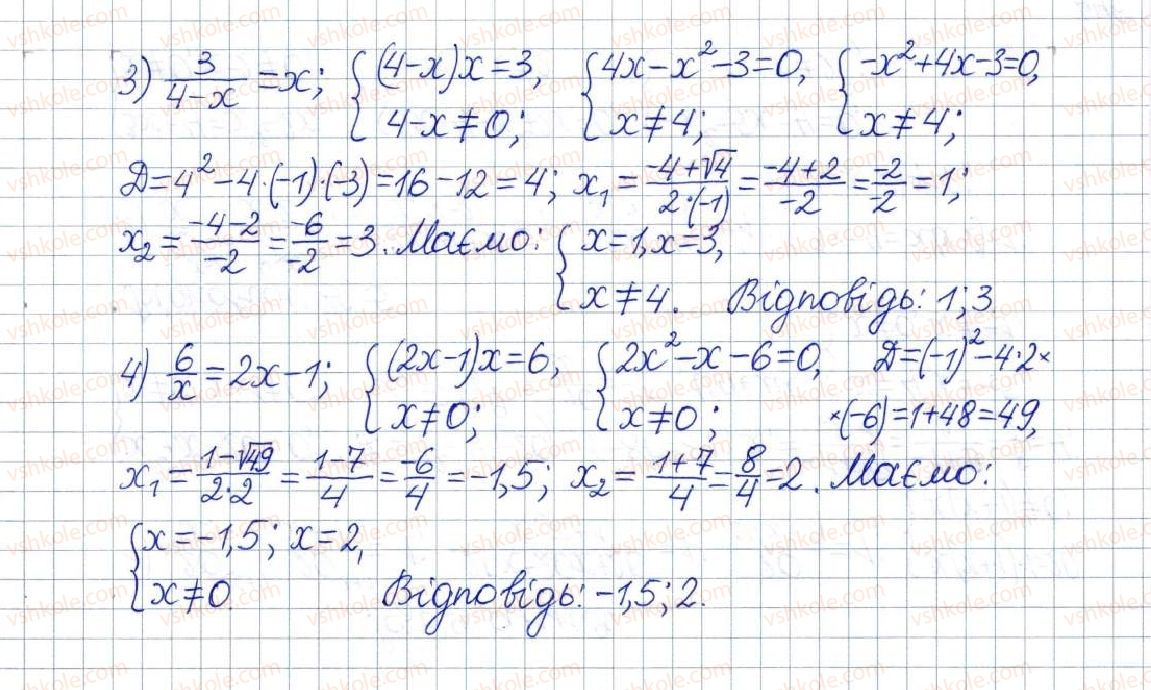 3) 3/(4-x) = x; { (4-x)x=3, 4-x≠0; { 4x-x²-3=0, x≠4; { -x²+4x-3=0, x≠4;
D=4²-4·(-1)·(-3)=16-12=4; x₁ = (-4+√4)/(2·(-1)) = (-4+2)/(-2) = (-2)/(-2) = 1;
x₂ = (-4-2)/(-2) = (-6)/(-2) = 3. Маємо: { x=1, x=3, x≠4. Відповідь: 1; 3
4) 6/x = 2x-1; { (2x-1)x=6, x≠0; { 2x²-x-6=0, x≠0; D=(-1)²-4·2×
×(-6)=1+48=49,
x₁ = (1-√49)/(2·2) = (1-7)/4 = (-6)/4 = -1,5; x₂ = (1+7)/4 = 8/4 = 2. Маємо:
{ x=-1,5; x=2,
x≠0 Відповідь: -1,5; 2.
vshkole.com